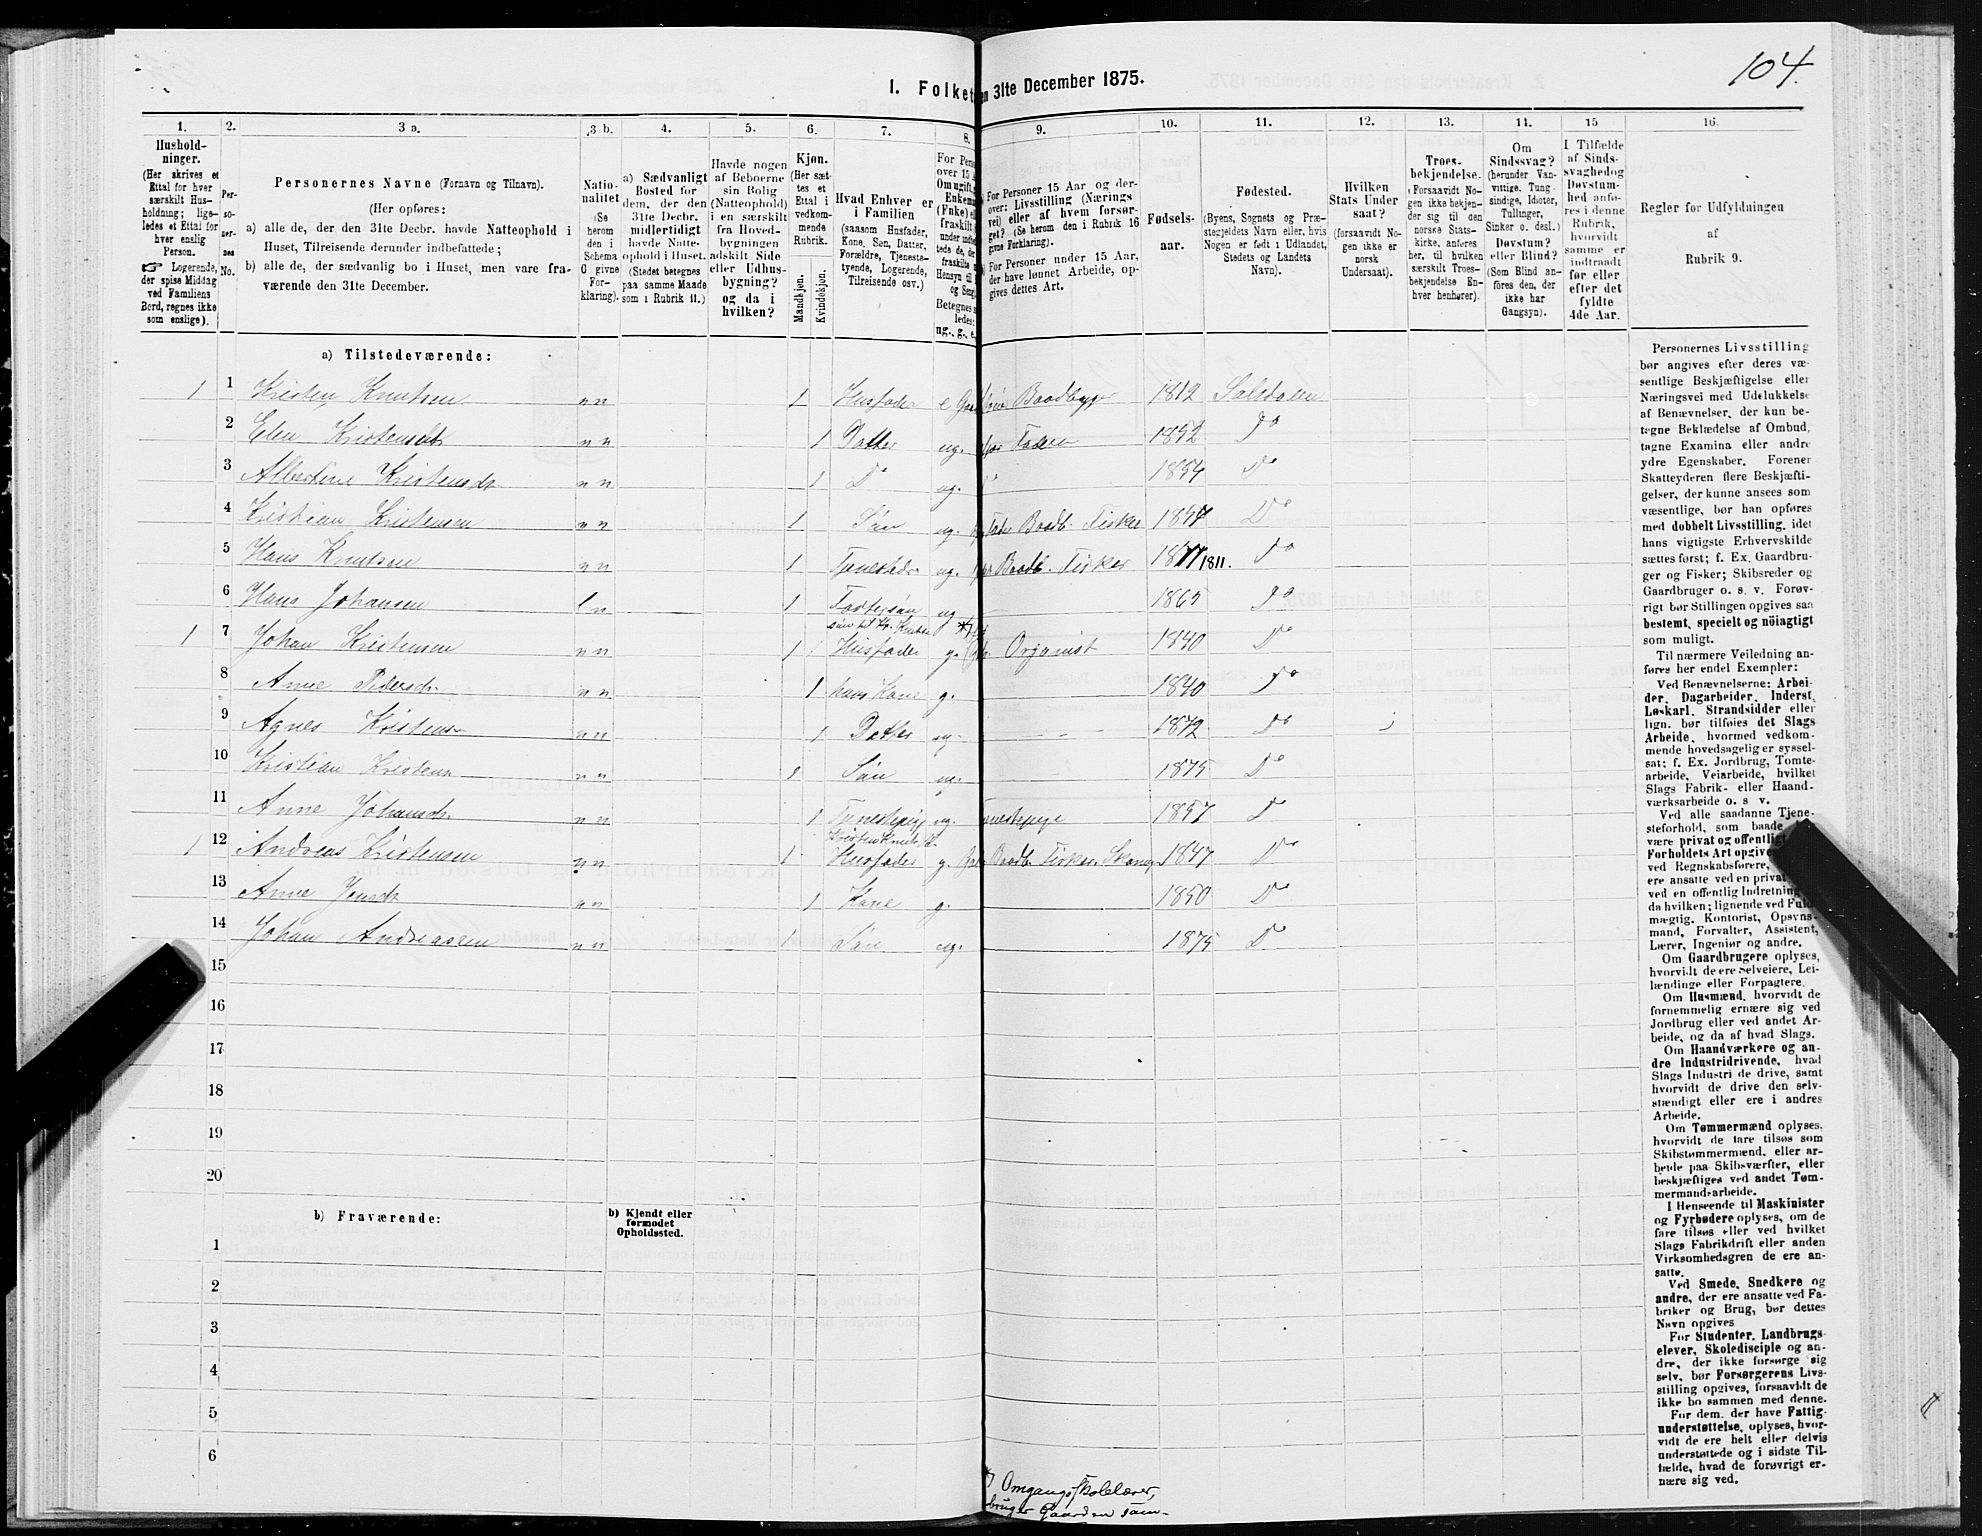 104.
I. Folket
en 31te December 1875.
1.
2.
3 a.
3 b.
4.
5.
6.
7.
8.
9.
10.
11.
12.
13.
14.
15
16.
Hushold-
ninger.
(Her skrives et
Ettal for hver
særskilt Hus-
holdning; lige-
ledes et Ettal for
hver enslig
Person.
☞ Logerende,
der spise Middag
ved Familiens
Bord, regnes ikke
som enslige).
Per-
so-
ner-
nes
No.
Personernes Navne (Fornavn og Tilnavn).
(Her opføres:
a) alle de, der den 31te Decbr. havde Natteophold i
Huset, Tilreisende derunder indbefattede;
b) alle de, der sædvanlig bo i Huset, men vare fra-
værende den 31te December.
Natio-
nalitet
(Se
herom
den i
Schema
O givne
For-
klaring).
a) Sædvanligt
Bosted for
dem, der den
31te Decbr.
midlertidigt
havde Natte-
ophold i Huset.
(Stedet betegnes
paa samme Maade
som i Rubrik 11.)
Havde nogen
af Beboerne
sin Bolig
(Natteophold)
i en særskilt
fra Hoved-
bygningen
adskilt Side
eller Udhus-
bygning?
og da i
hvilken?
Kjøn.
(Her sæt-
tes et
Ettal i
vedkom-
mende
Rubrik.
Mandkjøn.
Kvindekjøn.
Hvad Enhver er
i Familien
(saasom Husfader,
Kone, Søn, Datter,
Forældre, Tjeneste-
tyende, Logerende,
Tilreisende osv.)
For Pers
over 15 A
Om ugift,
Enkema
(Fnke) el
fraskilt
under indbe
tede de,
fraskilte m
Hensyn til
og Seng
Betegnes s
ledes:
ug., g., e.
For Personer 15 Aar og der-
over: Livsstilling (Nærings
vei) eller af hvem forsør-
get? (Se herom den i Rubrik 16
givne Forklaring).
For Personer under 15 Aar,
der have lønnet Arbeide, op-
gives dettes Art.
Fødsels-
aar.
Fødested.
(Byens, Sognets og Præ-
stegjeldets Navn eller, hvis
Nogen er født i Udlandet,
Stedets og Landets
Navn).
Hvilken
Stats Under
saat?
(forsaavidt No-
gen ikke er
norsk
Undersaat).
Troes-
bekjendelse.
(Forsaavidt No-
gen ikke bekjen-
der sig til den
norske Stats-
kirke, anføres
her, til hvilken
særskilt Troes-
bekjendelse En-
hver henhører).
Om
Sindssvag?
(herunder Van-
vittige, Tung-
sindige, Idioter,
Tullinger,
Sinker o. desl.)
Døvstum?
eller Blind?
(Som Blind an-
føres den, der
ikke har
Gangsyn).
I Tilfælde
af Sinds-
svaghed og
Døvstum-
hed anfø-
res i denne
Rubrik,
hvorvidt
samme er
indtraadt
før eller
efter det
fyldte
4de Aar.
Regler før Udfyldningen
af
Rubrik 9.
a) Tilstedeværende:
1 1 Kristen Knutsen n n 1 Husfader e Baadbygger 1812 Salsdalen
2 Elen Kristensdt n n 1 Datter ug. Faderen 1852 Do
3 Albertine Kristensdt. n n 1 Do ug. 1854 Do
4 Kristian Kristensen n n 1 Søn ug. Baadb. Fisker 1857 Do
5 Hans Knutsen n n 1 ug. Baadb. Fisker 1811. Do
6 Hans Johansen n 1 ug 1865 Do
søn til Kr. Knuts
1 7 Johan Kristensen n n 1 Husfader g. Organist 1840 Do
8 Anne Pedersdt. n n 1 hans Kone g. 1840 Do
9 Agnes Kristens n n 1 Datter ug. 1872 Do
10 Kristian Kristens n n 1 Søn ug. 1875 Do
11 Anne Johansdt. n n 1 Tjenestepige ug. 1857 Do
1 12 Andreas Kristensen n n 1 Husfader g. Baadb. Fisker. 1847 Do
13 Anne Jensdt n n 1 Kone g. 1850 Do
14 Johan Andreassen n n 1 Søn ug. 1875 Do
15
16
17
18
19
20
b) Fraværende:
b) Kjendt eller
formodet
Opholdssted.
1
2
3
4
5
6
Personernes Livsstilling
bør angives efter deres væ-
sentlige Beskjæftigelse eller
Næringsvei med Udelukkelse
af Benævnelser, der kun be-
tegne Beklædelse af Ombud,
tagne Examina eller andre
ydre Egenskaber. Forener
Skatteyderen flere Beskjæfti-
gelser, der kunne ansees som
væsentlige, bør han opføres
med dobbelt Livsstilling, idet
hans vigtigste Erhvervskilde
sættes først; f. Ex. Gaardbru-
ger og Fisker; Skibsreder og
Gaardbruger o. s. v. Forøv-
rigt bør Stillingen opgives saa
bestemt, specielt og nöiagtigt
som muligt.
Til nærmere Veiledning an-
føres her endel Exempler:
Ved Benævnelserne: Arbei-
der, Dagarbeider, Inderst,
Løskarl, Strandsidder eller
lign. bør tilføies det Slags
Arbeide, hvormed vedkom-
mende hovedsagelig er syssel-
sat: f. Ex. Jordbrug, Tomte-
arbeide, Veiarbeide, hvilket
Slags Fabrik- eller Haand-
værksarbeide o. s. v.
Ved alle saadanne Tjene-
steforhold, som baade
være privat og offentligt
Forholdets Art opgive
ved Regnskabsførere,
ere ansatte ved en privat
ved en offentlig Indretning
da hvilken; lignende ved Fuld
mægtig, Kontorist, Opsyns-
mand, Forvalter, Assistent,
Lærer, Ingeniør og andre.
Om Gaardbrugere oplyses,
hvorvidt de ere Selveiere, Lei-
lændinge eller Forpagtere.
Om Husmænd, hvorvidt de
fornemmelig ernære sig ved
Jordbrug eller ved andet Ar-
beide, og da af hvad Slags.
Om Haandværkere og an-
dre Industridrivende, hvad
Slags Industri de drive, samt
hvorvidt de drive den selv-
stændigt eller ere i andres
Arbeide.
Om Tømmermænd oplyses,
hvorvidt de fare tilsøs som
Skibstømmermænd, eller ar-
beide paa Skibsværfter, eller
beskjæftiges ved andet Tøm-
mermandsarbeide.
I Henseende til Maskinister
og Fyrbødere oplyses, om de
fare tilsøs eller ved hvilket
Slags Fabrikdrift eller anden
Virksomhedsgren de ere an-
satte.
Ved Smede, Snedkere og
andre, der ere ansatte ved Fa-
briker og Brug, bør dettes
Navn opgives
For Studenter, Landbrugs-
elever, Skoledisciple og an-
dre, der ikke forsørge sig
selv, bør Forsørgerens Livs-
stilling opgives, forsaavidt de
ikke bo sammen med denne.
For dem, der have Fattig-
understøttelse, oplyses, hvor-
vidt de ere helt eller delvis
understøttede og i sidste Til-
fælde, hvad de forøvrigt er-
nære sig ved.
*) Omgangsskolelærer,
bruger Gaarden sam-